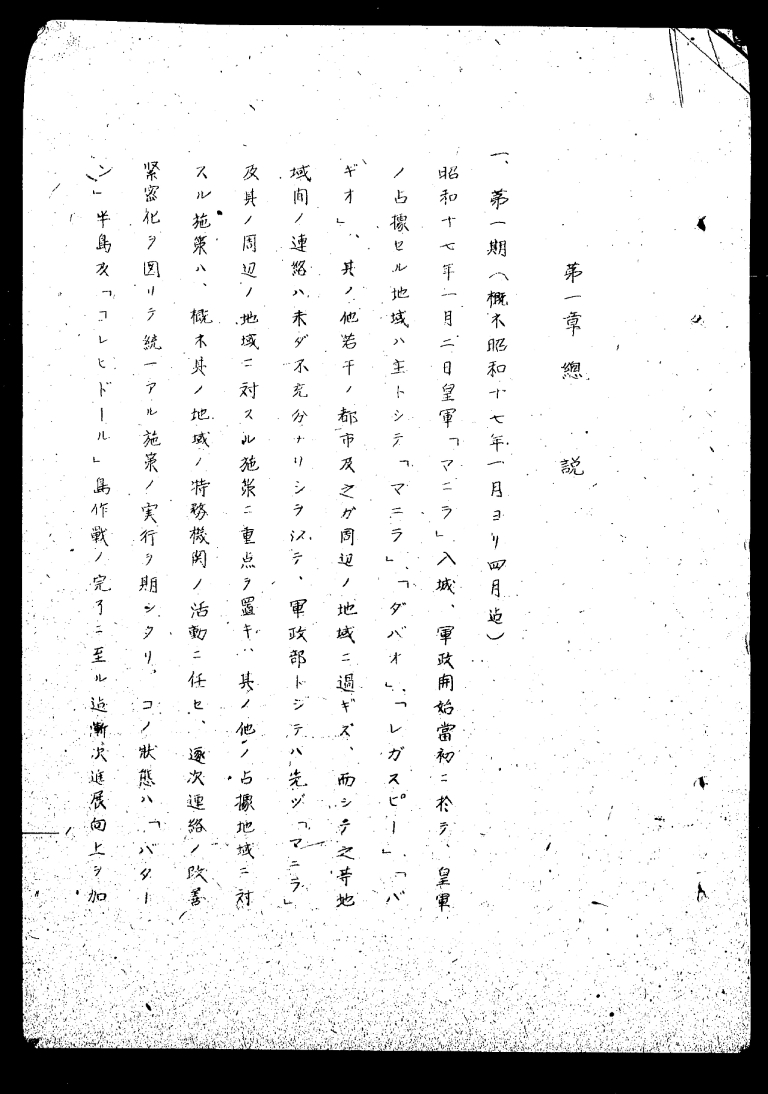 第一章 總 説
一、第一期（概ネ昭和十七年一月ヨリ四月迄）
昭和十七年一月二日皇軍「マニラ」入城、軍政開始當初ニ於テ、皇軍
ノ占據セル地域ハ主トシテ「マニラ」、「ダバオ」、「レガスピー」、「バ
ギオ」、其ノ他若干ノ都市及之ガ周辺ノ地域ニ過ギズ、而シテ之等地
域間ノ連絡ハ未ダ不充分ナリシヲ以テ、軍政部トシテハ先ヅ「マニラ」
及其ノ周辺ノ地域ニ対スル施策ニ重点ヲ置キ、其ノ他ノ占據地域ニ対
スル施策ハ、概ネ其ノ地域ノ特務機関ノ活動ニ任セ、逐次連絡ノ改善
緊密化ヲ図リテ統一アル施策ノ実行ヲ期シタリ、コノ狀態ハ「バター
ン」半島及「コレヒドール」島作戦ノ完了ニ至ル迄漸次進展向上ヲ加